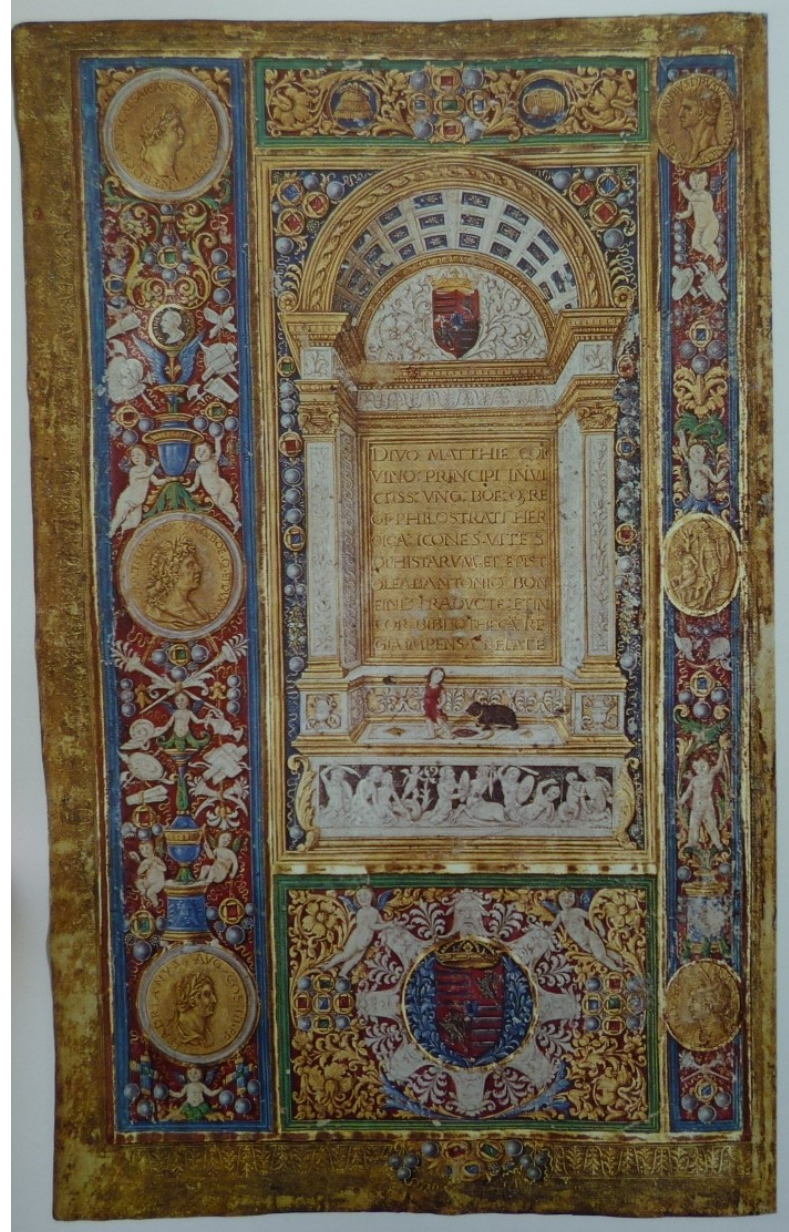 DIVO MATTHIE COR
VINO: PRINCIPI INVI
CTISS: VNG: BOE: Q; RE
GI· PHILOSTRATI· HER
OICA: ICONES· VITE S
OPHISTARVM· ET EPIST
OLE AB ANTONIO BON
FINE TRADVCTE: ET IN
COR: BIBLIOTHECA RE
GIA IMPENSA: RELATE
AVG COS III